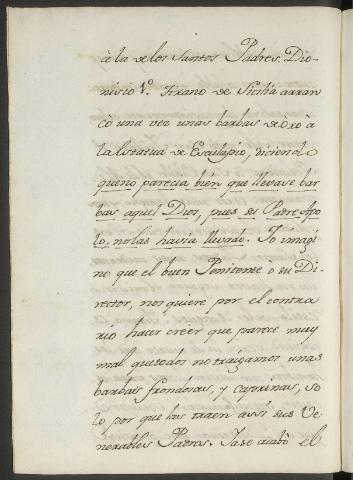 ò la de los Santos Padres. Dio-
nisio 1.º Tirano de Sicilia arran
cò una vez unas barbas de oro à
la Estatua de Esculapio, diciendo
que no parecia bien que llevase bar
bas aquel Dios, pues su Padre Apo
lo, no las havia llevado. Yo imagi
no que el buen Penitente ò su Di-
rector, nos quiere por el contra
rio hacer creer que parece muy
mal que todos no traigamos unas
barbas frondosas, y caprinas, so
lo por que las traen assi sus Ve
nerables Padres. Ya se acabò el